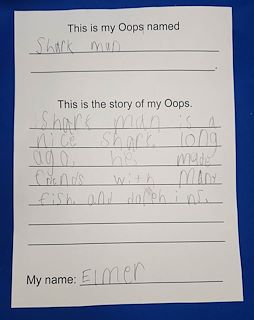 This is my Oops named
Shark man
This is the story of my Oops.
Shark man is a
nice shark. long
ago, he made
friends with many
fish and dolphins.
My name: Elmer